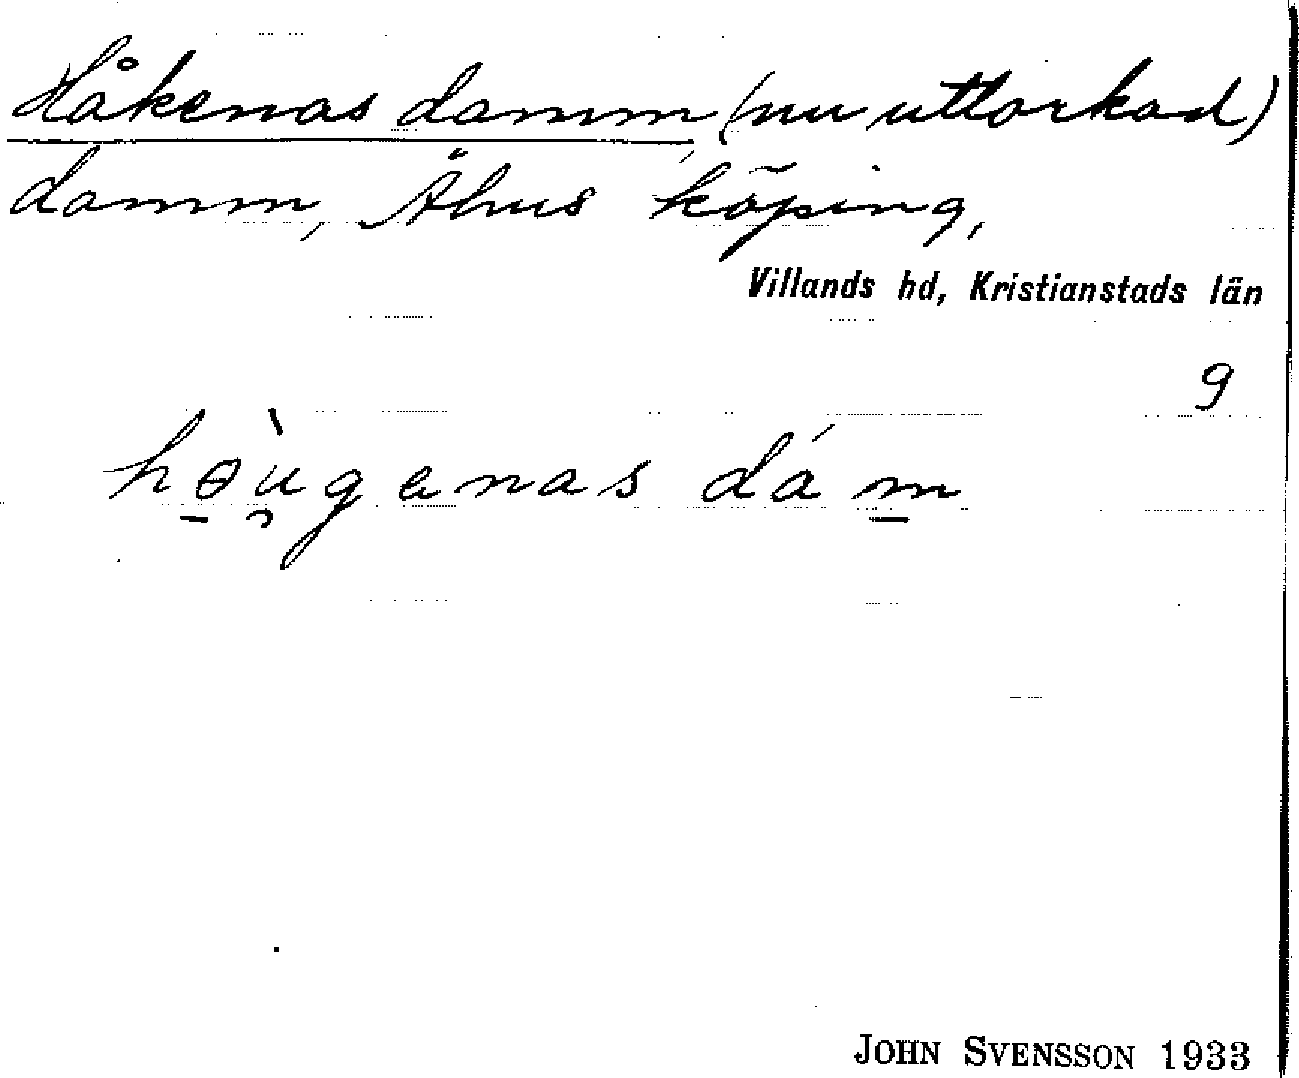 Håkenas damm, (nu uttorkad)
damm, Åhus köping,
Villands hd, Kristianstads län
9
hɵ̱̀u̯genas dám̱
JOHN SVENSSON 1933